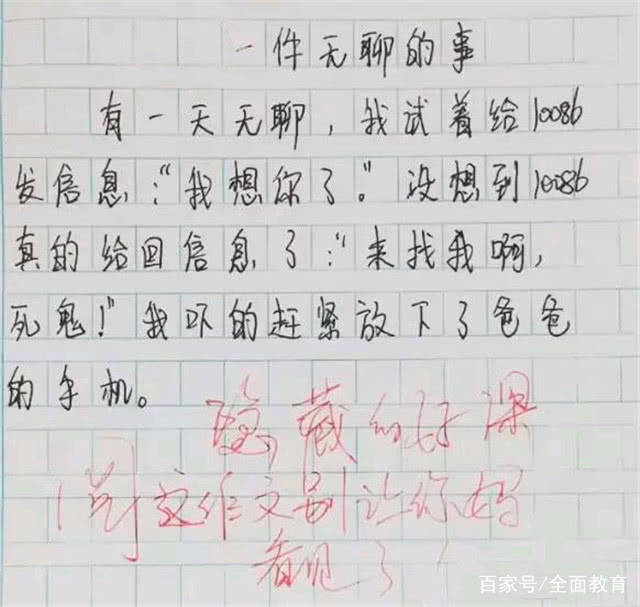 一件无聊的事
有一天无聊，我试着给10086
发信息："我想你了。"没想到10086
真的给回信息了："来找我啊，
死鬼！"我吓的赶紧放下了爸爸
的手机。
隐藏的好深
这作文别让你妈
看见了！
百家号/全面教育